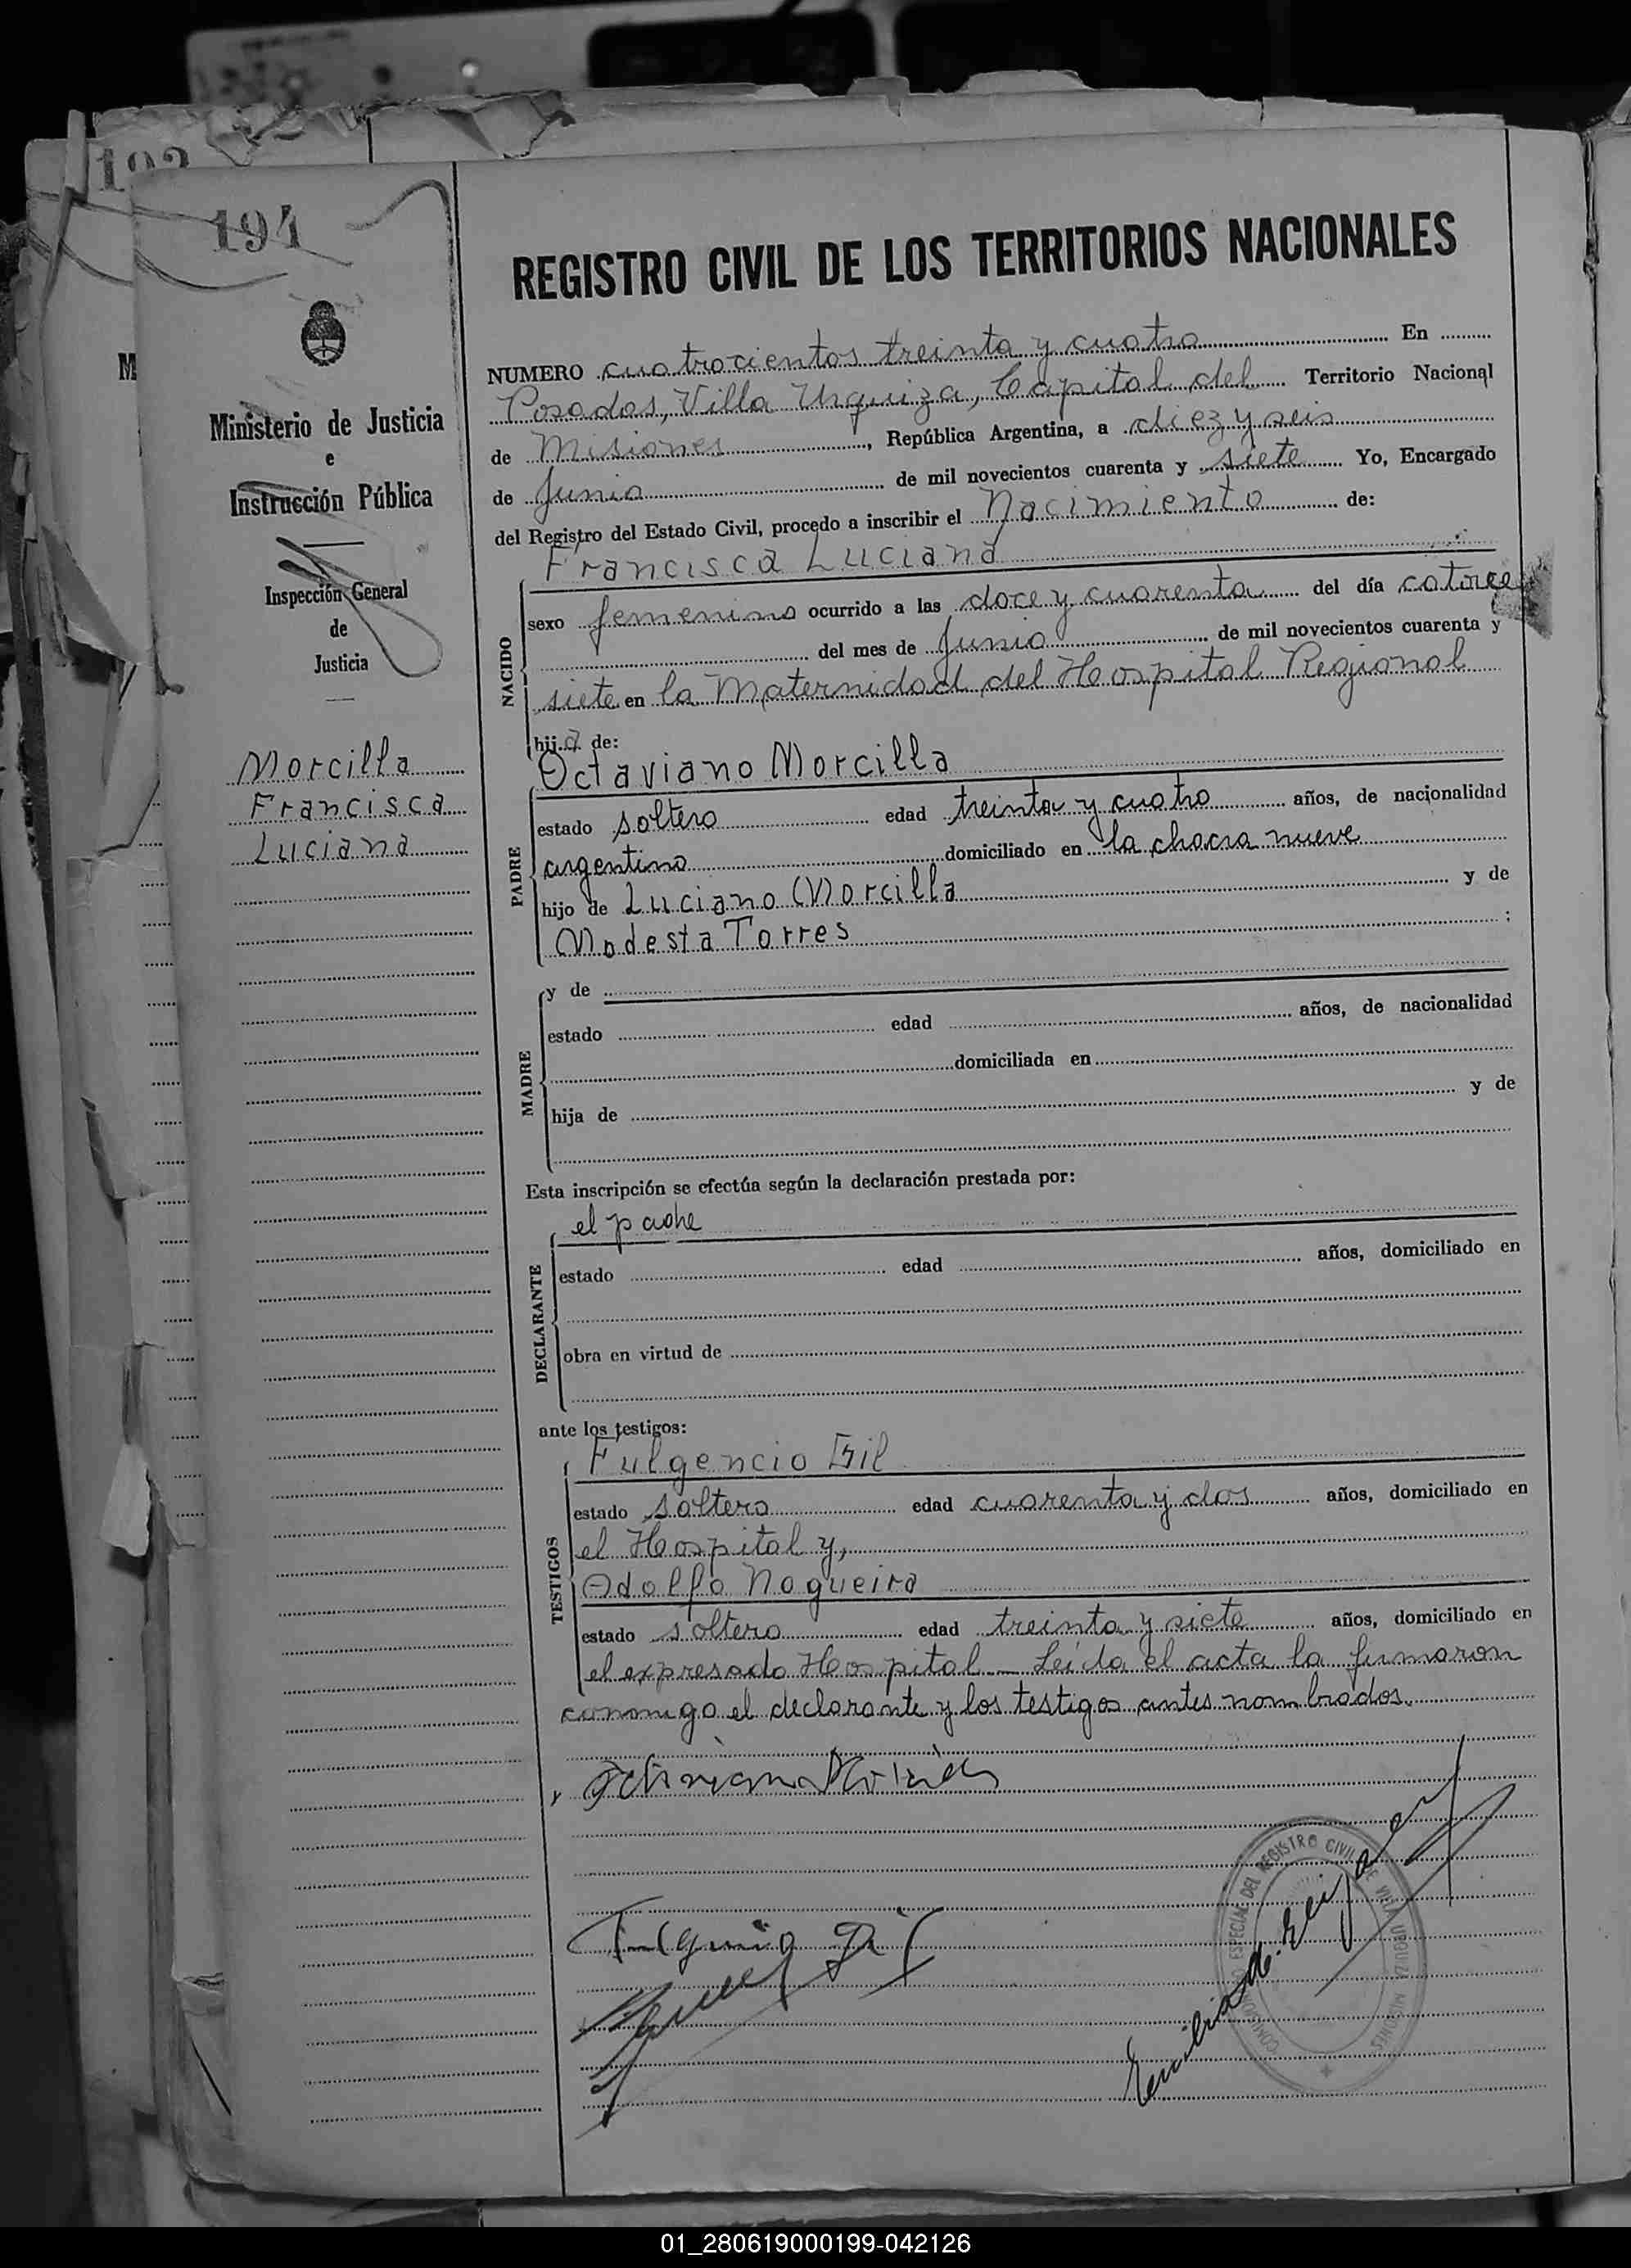 192
194
M
Ministerio de Justicia
e
Instrucción Pública
Inspección General
de
Justicia
Morcilla
Francisca
Luciana
REGISTRO CIVIL DE LOS TERRITORIOS NACIONALES
NUMERO cuatrocientos treinta y cuatro En
Posadas, Villa Urquiza, Capital del Territorio Nacional
de Misiones, República Argentina, a diez y seis
de Junio de mil novecientos cuarenta y siete Yo, Encargado
del Registro del Estado Civil, procedo a inscribir el Nacimiento de:
Francisca Luciana
NACIDO
sexo femenino ocurrido a las doce y cuarenta del día catorce
del mes de Junio de mil novecientos cuarenta y
siete en la Maternidad del Hospital Regional
hija de:
Octaviano Morcilla
PADRE
estado soltero edad treinta y cuatro años, de nacionalidad
argentino domiciliado en la chacra nueve
hijo de Luciano Morcilla y de
Modesta Torres ;
MADRE
y de
estado edad años, de nacionalidad
domiciliada en
hija de y de
Esta inscripción se efectúa según la declaración prestada por:
el padre
DECLARANTE
estado edad años, domiciliado en
obra en virtud de
ante los testigos:
Fulgencio Gil
TESTIGOS
estado soltero edad cuarenta y dos años, domiciliado en
el Hospital y,
Adolfo Nogueira
estado soltero edad treinta y siete años, domiciliado en
el expresado Hospital_ Leída el acta la firmaron
conmigo el declarante y los testigos antes nombrados.
Fulgencio Gil
REGISTRO CIVIL DE VILLA URQUIZA MISIONES
01_280619000199-042126